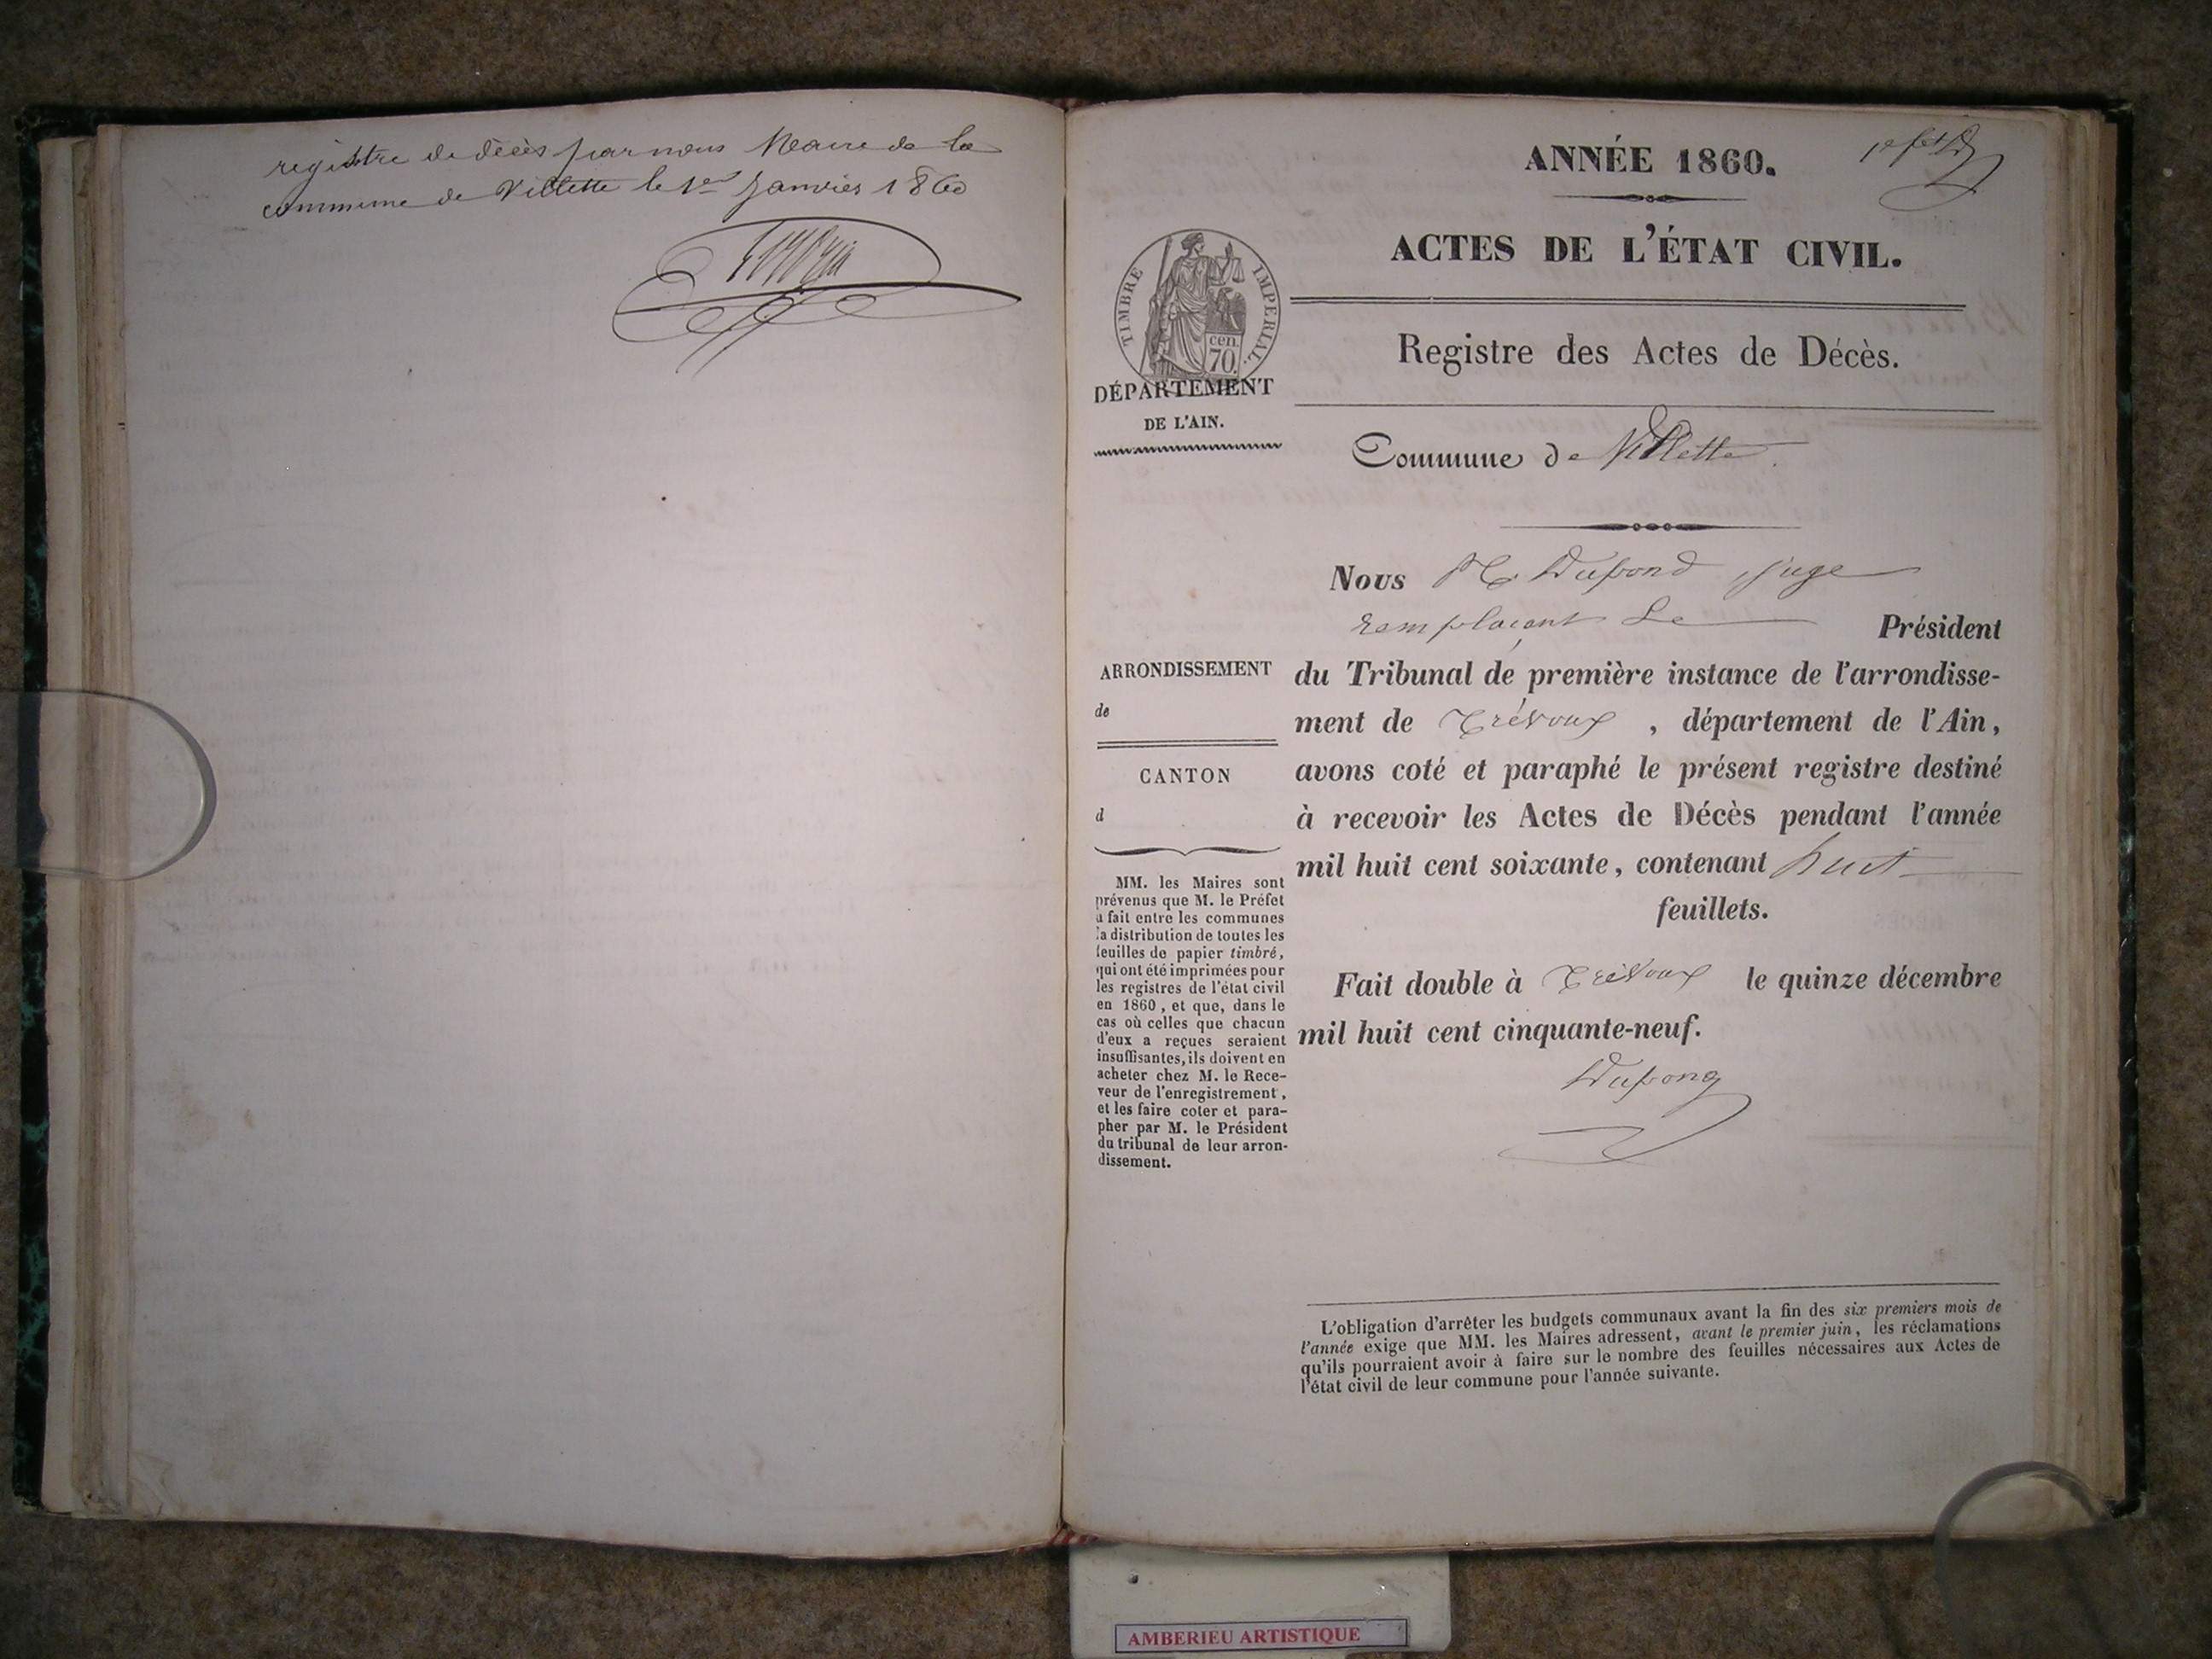 registre de décès par nous Maire de la
commune de Villette le 1er Janvier 1860
ANNÉE 1860.
1er fet
ACTES DE L'ÉTAT CIVIL.
TIMBRE IMPERIAL.
cen.
70.
Registre des Actes de Décès.
DÉPARTEMENT
DE L'AIN.
Commune de Villette
Nous M. Dupond, juge
remplaçant le Président
ARRONDISSEMENT
de
CANTON
d
MM. les Maires sont
prévenus que M. le Préfet
a fait entre les communes
la distribution de toutes les
feuilles de papier timbré,
qui ont été imprimées pour
les registres de l'état civil
en 1860, et que, dans le
cas où celles que chacun
d'eux a reçues seraient
insuffisantes, ils doivent en
acheter chez M. le Rece-
veur de l'enregistrement,
et les faire coter et para-
pher par M. le Président
du tribunal de leur arron-
dissement.
du Tribunal de première instance de l'arrondisse-
ment de Trévoux, département de l'Ain,
avons coté et paraphé le présent registre destiné
à recevoir les Actes de Décès pendant l'année
mil huit cent soixante, contenant huit
feuillets.
Fait double à Trévoux le quinze décembre
mil huit cent cinquante-neuf.
Dupond
L'obligation d'arrêter les budgets communaux avant la fin des six premiers mois de
l'année exige que MM. les Maires adressent, avant le premier juin, les réclamations
qu'ils pourraient avoir à faire sur le nombre des feuilles nécessaires aux Actes de
l'état civil de leur commune pour l'année suivante.
AMBERIEU ARTISTIQUE